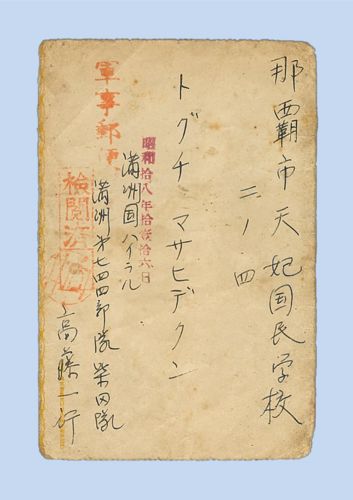 那覇市天妃国民学校
二ノ四
トグチ マサヒデクン
昭和拾八年拾弐月拾六日
満洲国ハイラル
満洲第七四四部隊柴田隊
高藤一行
軍事郵便
検閲済